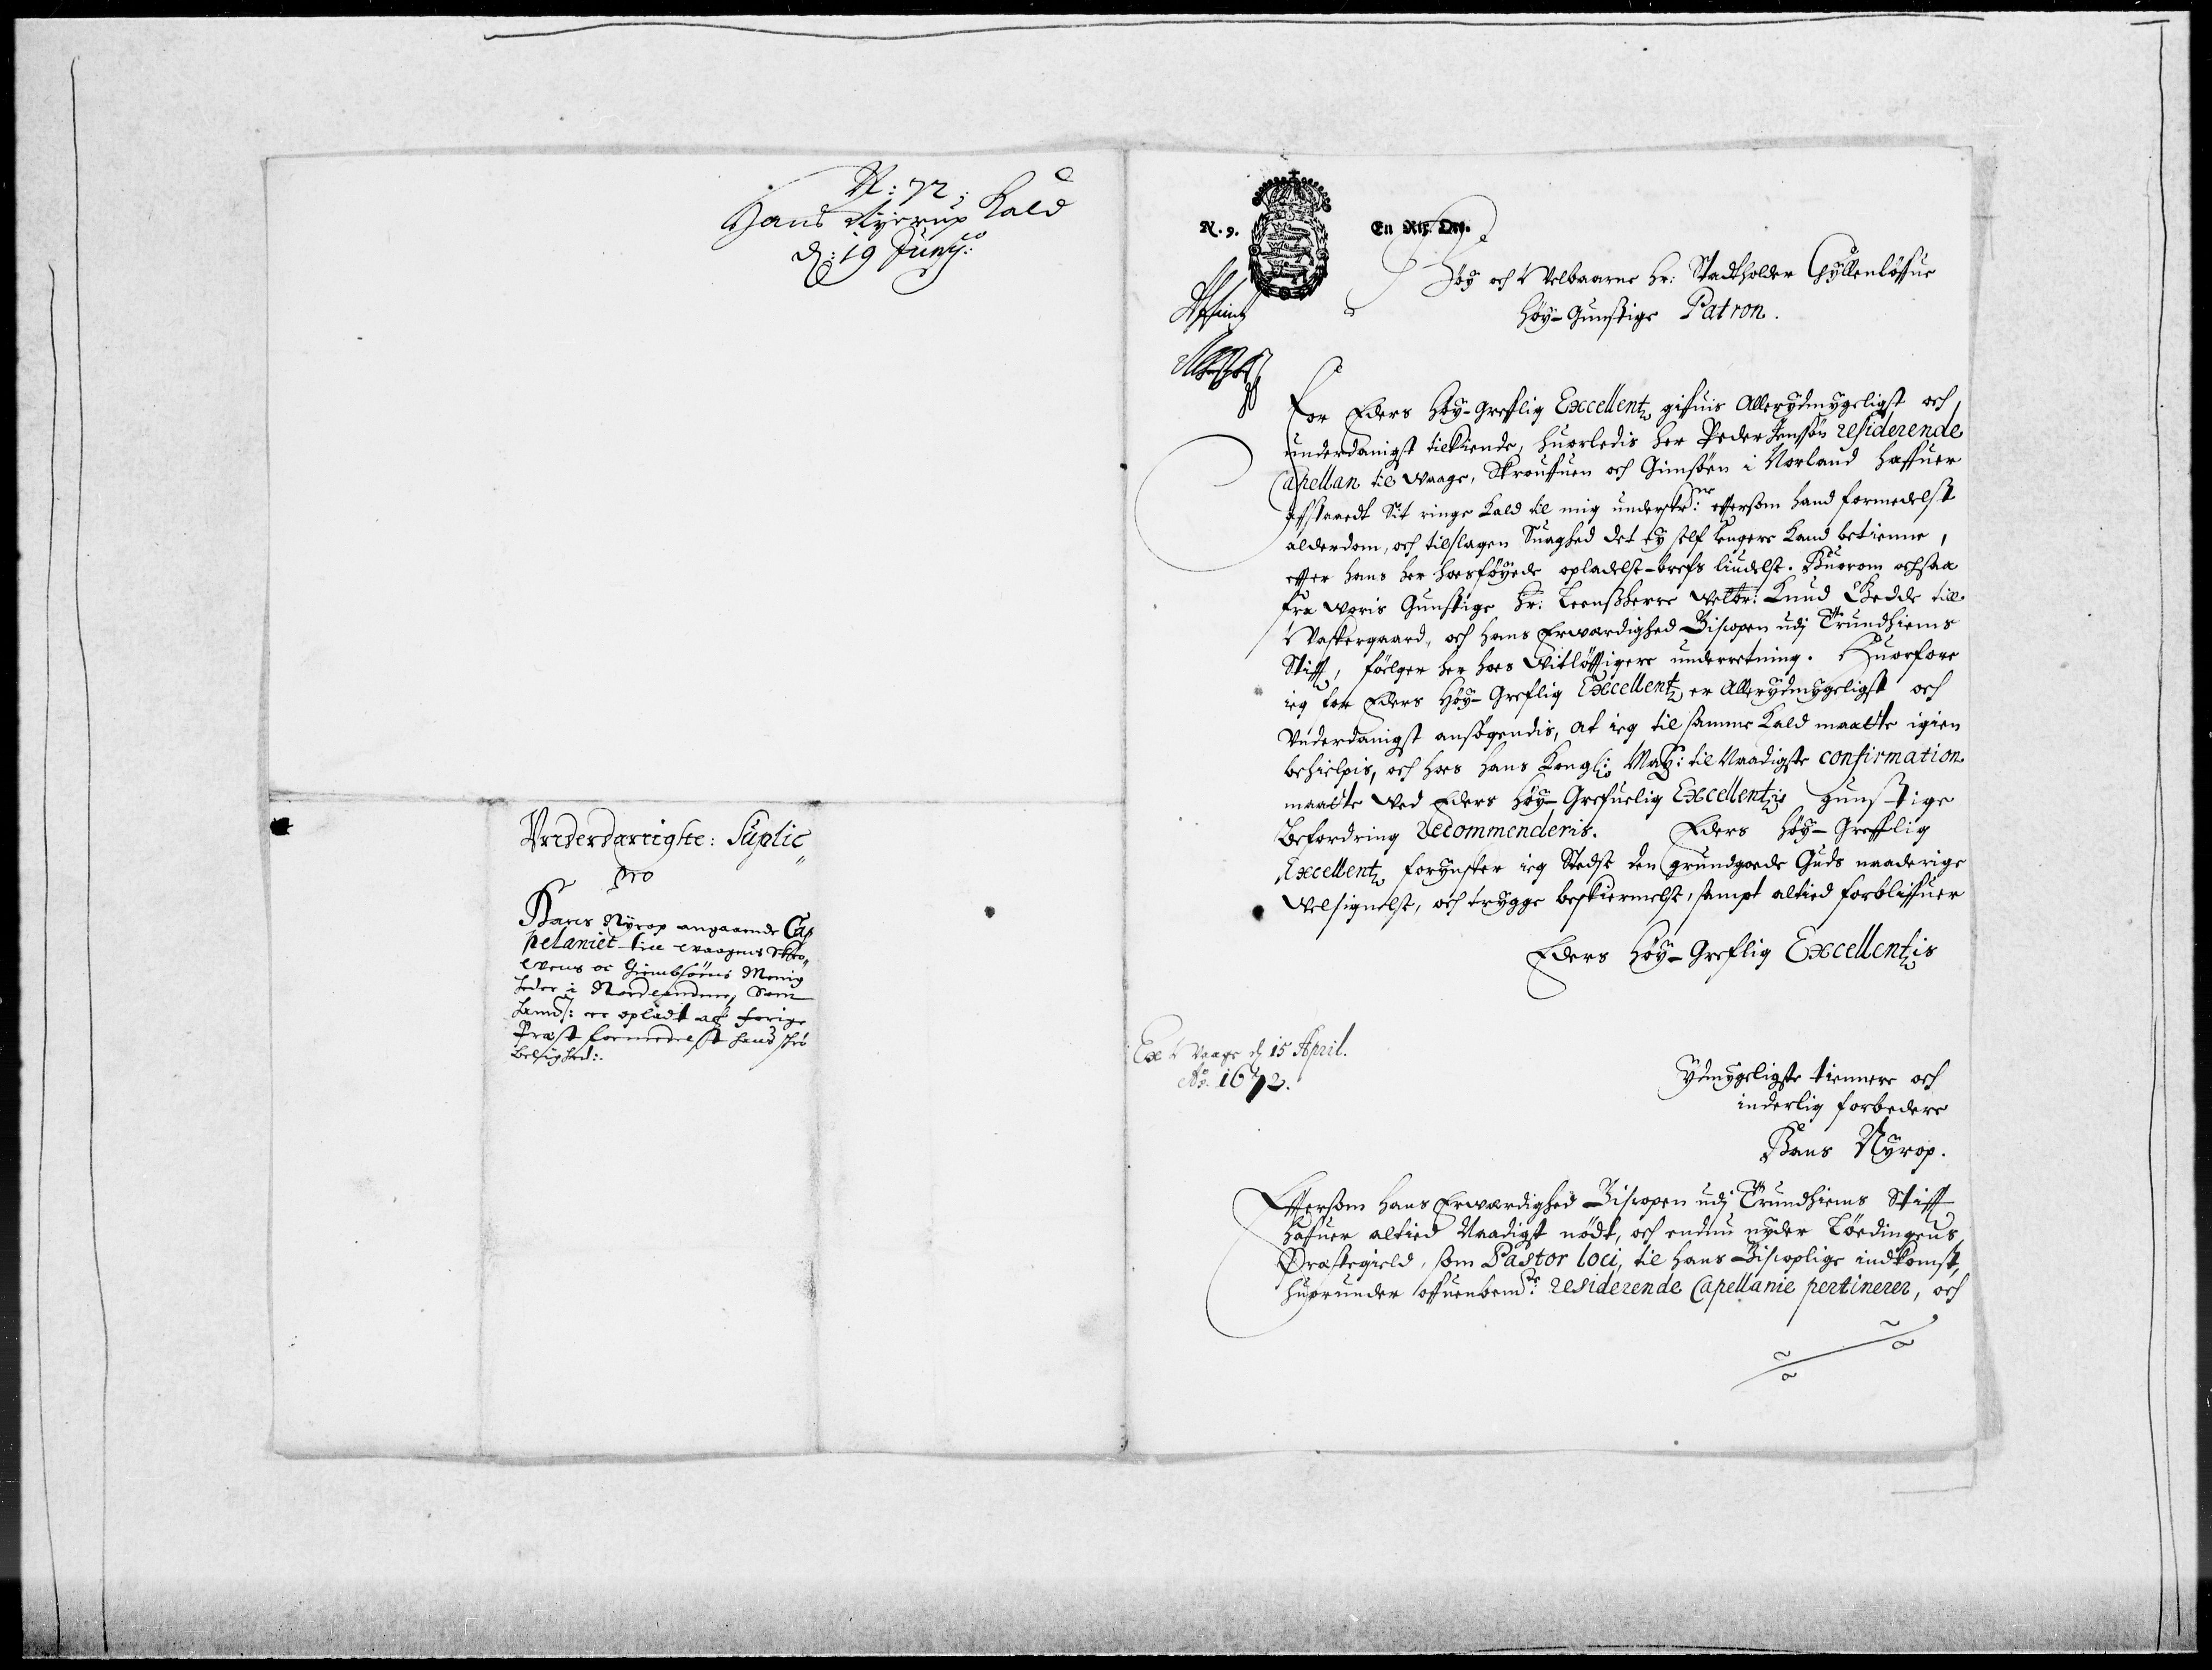 N: 72;
Hans Nyerup Kald
d: 19 Junij:
Vnderdanigste: Suplic
pro
Hans Nyrop angaaende Ca-
pelaniet till Waagens Skro-
wens oc Gimbsöens Menig
heder i Nordlanden, Som
hannd: er opladt aff forige
Præst formedelst hans skrö
belighed:.
N. 9.
En Rix Ort.
Höy och Velbaarne Hr: Stadtholder Gyllenlöffue
Höy-Gunstige Patron.
For Eders Höy-Grefflig Excellentz gifuis Allerydmygeligst och
underdanigst tilkiende, huorledis her Peder Jenssön residerende
Capellan til Waage, Skrouffuen och Gimsöen i Norland haffuer
affstaaedt Sit ringe Kald til mig underskr: effersom hand formedelst
alderdom, och tilslagen Suaghed det ey self lengere kand betienne,
efter hans her hoesföyede opladelse-brefs liudelse. Huorom ochsaa
fra Woris Gunstige Hr: Leenssherre Welbr: Knud Gedde till
Vaskergaard, och Hans Erwærdighed Biscopen udj Trundhiems
Stifft, fölger her hoes Vitlöfftigere underretning. Huorfore
ieg for Eders Höy-Greflig Excellentz er Allerydmygeligst och
Vnderdanigst ansögendis, at ieg til samme Kald maatte igien
behielpis, och hoes Hans Kongl: May: til Naadigste confirmation
maatte Ved Eders Höy-Grefuelig Excellentzis gunstige
Befordring recommenderis. Eders Höy-Grefflig
Excellentz forynsker ieg Stedse den grundgoede Guds naaderige
Velsignelse, och trygge beskiermelse, sampt altied forbliffuer
Eders Höy-Greflig Excellentzis
Ex Vaage d 15 April.
Ao. 1672.
Ydmygeligste tiennere och
inderlig forbedere
Hans Nyrop.
Effersom Hans Erwærdighed Biscopen udj Trundhiems Stifft
hafuer altied Naadigst nödt, och endnu nyder Löedingens
Præstegield, som Pastor loci, til hans Biscoplige indkomst,
huorunder offuenbemte: residerende Capellanie pertinerer, och